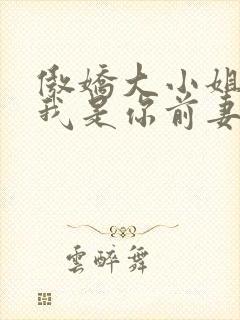 傲嬌大小姐
我是你前妻
雲醉舞